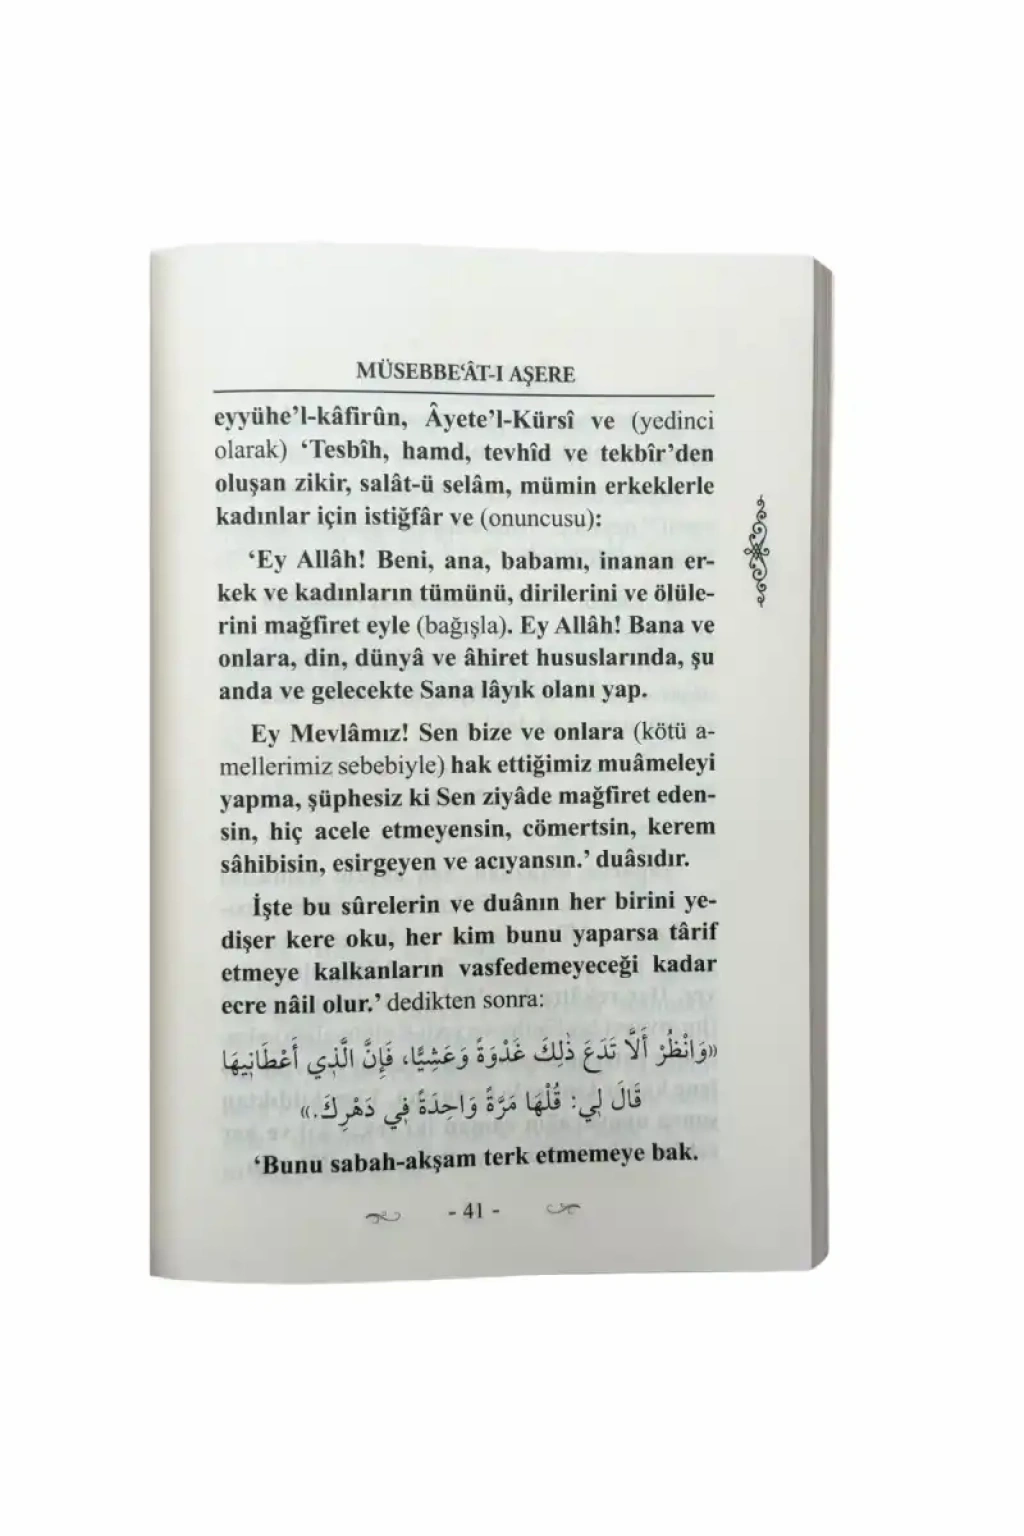 MÜSEBBE‘ÂT-I AŞERE
eyyühe’l-kâfirûn, Âyete’l-Kürsî ve (yedinci
olarak) ‘Tesbîh, hamd, tevhîd ve tekbîr’den
oluşan zikir, salât-ü selâm, mümin erkeklerle
kadınlar için istiğfâr ve (onuncusu):
‘Ey Allâh! Beni, ana, babamı, inanan er-
kek ve kadınların tümünü, dirilerini ve ölüle-
rini mağfiret eyle (bağışla). Ey Allâh! Bana ve
onlara, din, dünyâ ve âhiret hususlarında, şu
anda ve gelecekte Sana lâyık olanı yap.
Ey Mevlâmız! Sen bize ve onlara (kötü a-
mellerimiz sebebiyle) hak ettiğimiz muâmeleyi
yapma, şüphesiz ki Sen ziyâde mağfiret eden-
sin, hiç acele etmeyensin, cömertsin, kerem
sâhibisin, esirgeyen ve acıyansın.’ duâsıdır.
İşte bu sûrelerin ve duânın her birini ye-
dişer kere oku, her kim bunu yaparsa târif
etmeye kalkanların vasfedemeyeceği kadar
ecre nâil olur.’ dedikten sonra:
«وَانْظُرْ أَلَّا تَدَعَ ذٰلِكَ غَدْوَةً وَعَشِيًّا، فَإِنَّ الَّذِي أَعْطَانِيهَا
قَالَ لِي: قُلْهَا مَرَّةً وَاحِدَةً فِي دَهْرِكَ.»
‘Bunu sabah-akşam terk etmemeye bak.
- 41 -